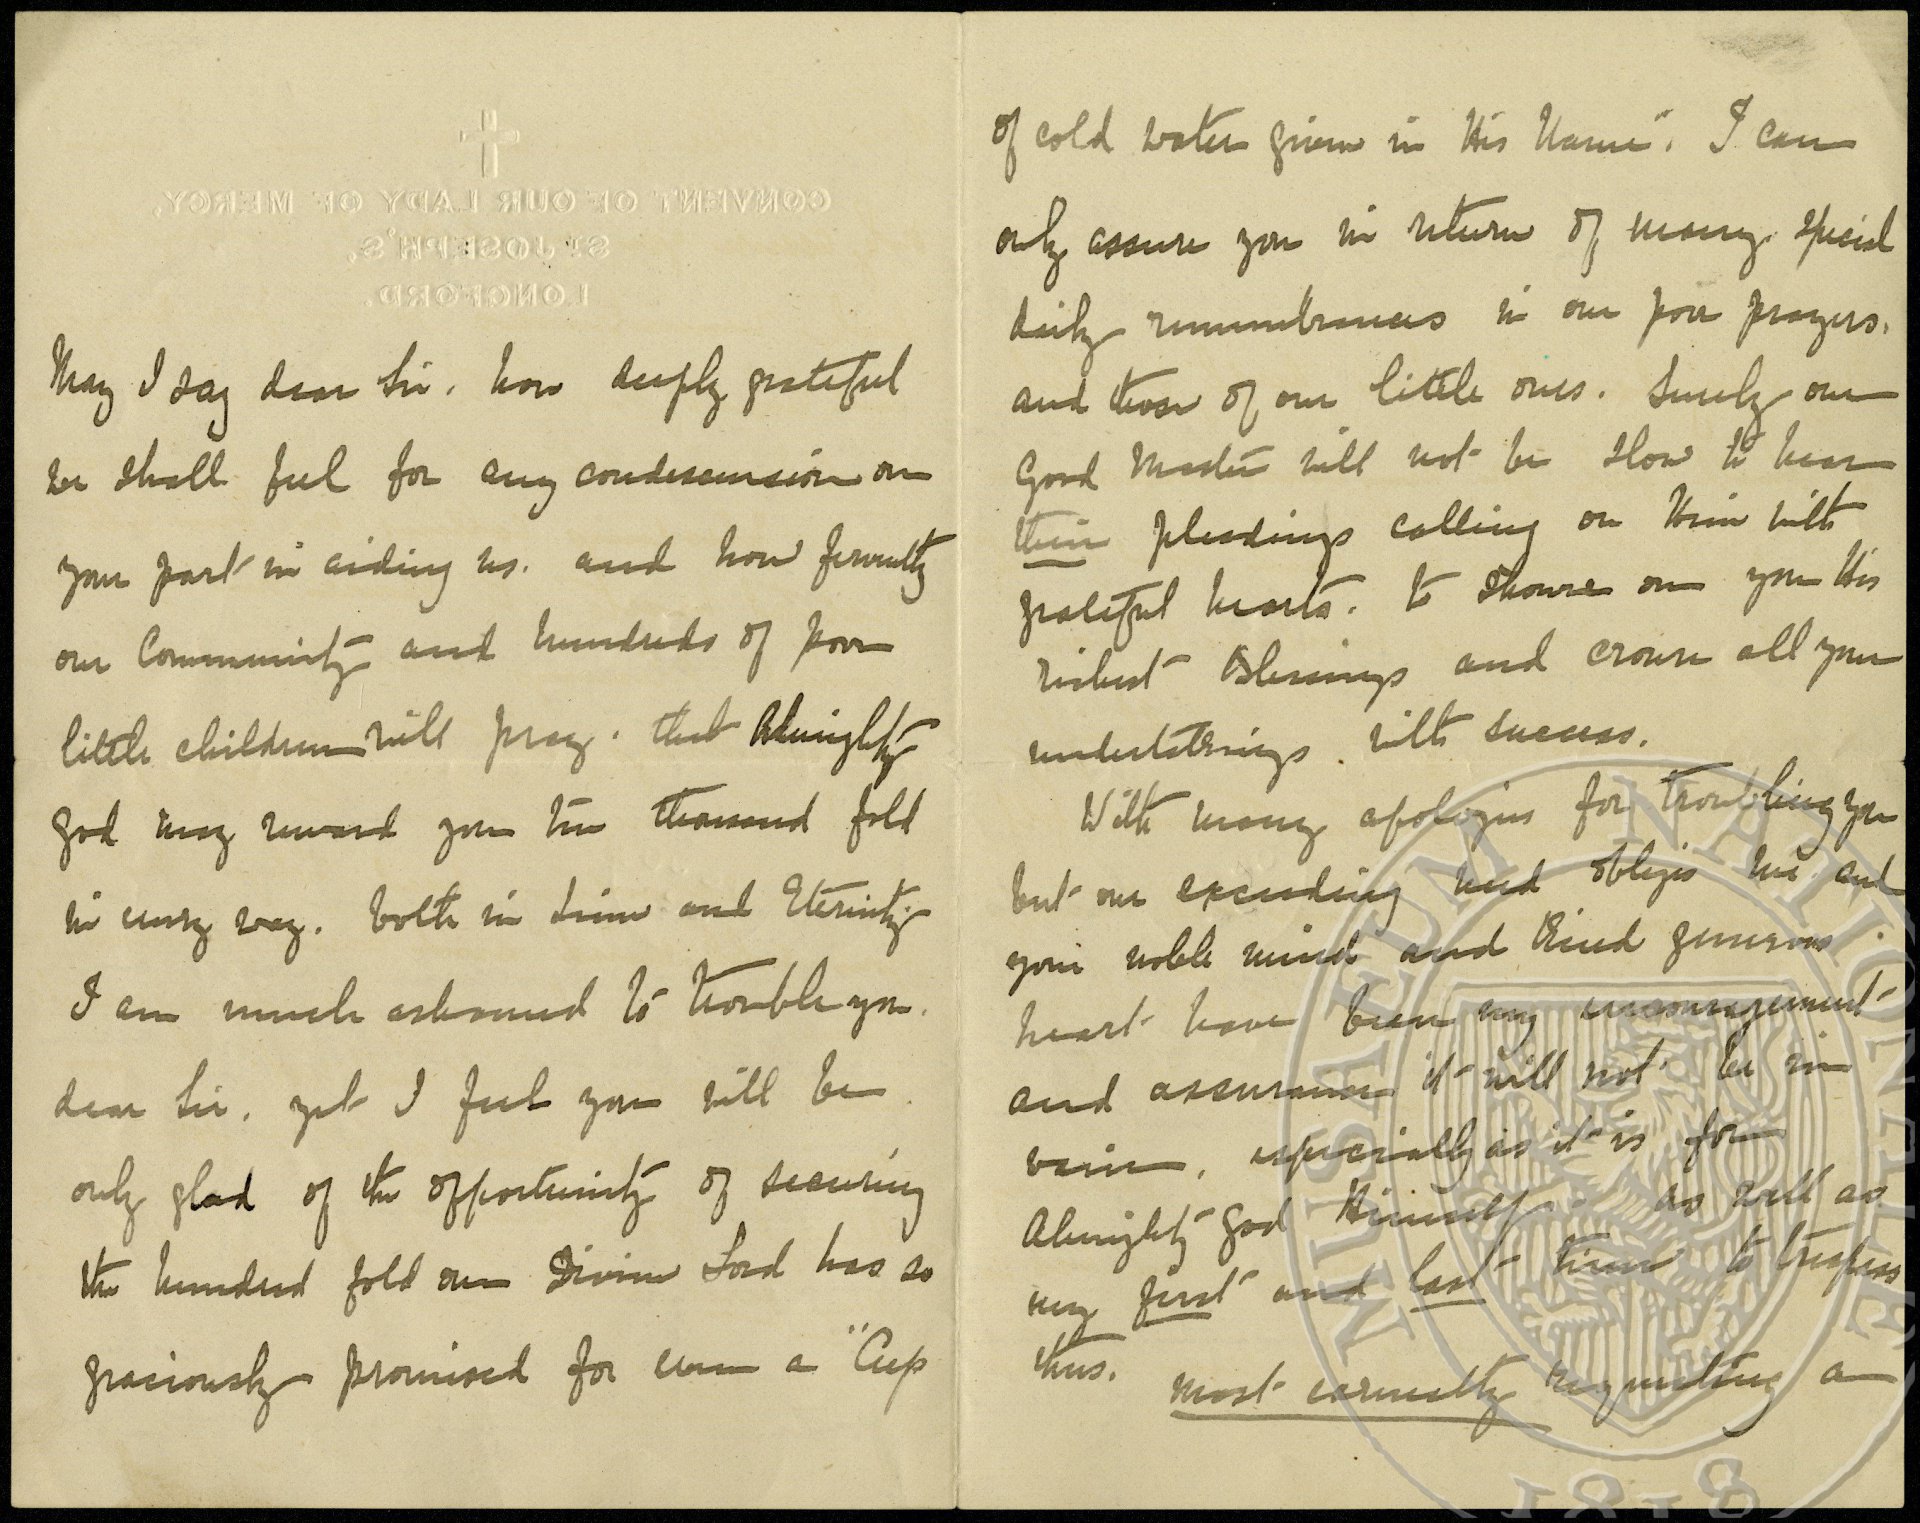 CONVENT OF OUR LADY OF MERCY,
ST JOSEPH'S,
LONGFORD.
May I say dear Sir, how deeply grateful
we shall feel for any condescension on
your part in aiding us. and how fervently
our Community and hundreds of poor
little children will pray. that Almighty
God may reward you ten thousand fold
in every way. both in time and Eternity.
I am much ashamed to trouble you.
dear Sir, yet I feel you will be
only glad of the opportunity of securing
the hundred fold our Divine Lord has so
graciously promised for even a "Cup
of cold water given in His Name". I can
only assure you in return of many special
daily remembrances in our poor prayers.
and those of our little ones. Surely our
Good Master will not be slow to hear
their pleadings calling on Him with
grateful hearts. to shower on you His
richest Blessings and crown all your
undertakings. with success.
With many apologies for troubling you
but our exceeding need obliges me and
your noble mind and kind generous
heart have been my encouragement
and assurance it will not be in
vain, especially as it is for
Almighty God Himself. as well as
my first and last time to trespass
thus. most earnestly requesting a
MAGYAR NATIONALE
MUSAEUM
1818